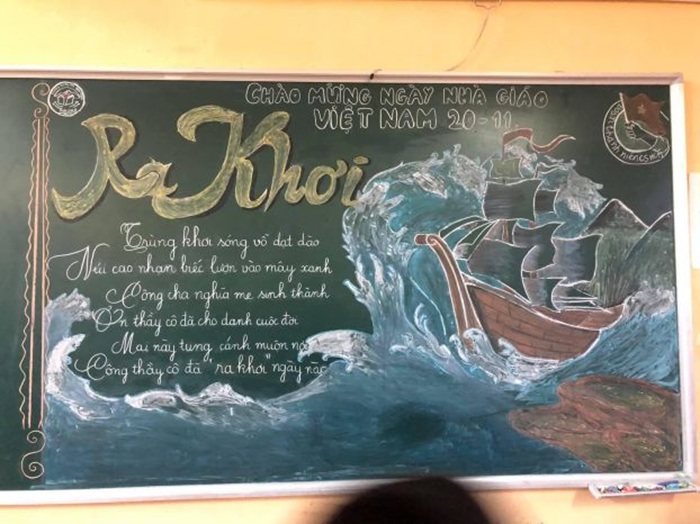 CHÀO MỪNG NGÀY NHÀ GIÁO
VIỆT NAM 20-11
Ra Khơi
Trùng khơi sóng vỗ dạt dào
Núi cao nhạn biếc lượn vào mây xanh
Công cha nghĩa mẹ sinh thành
Ơn thầy cô đã cho danh cuộc đời
Mai này tung cánh muôn nơi
Công thầy cô đã "ra khơi" ngày nào